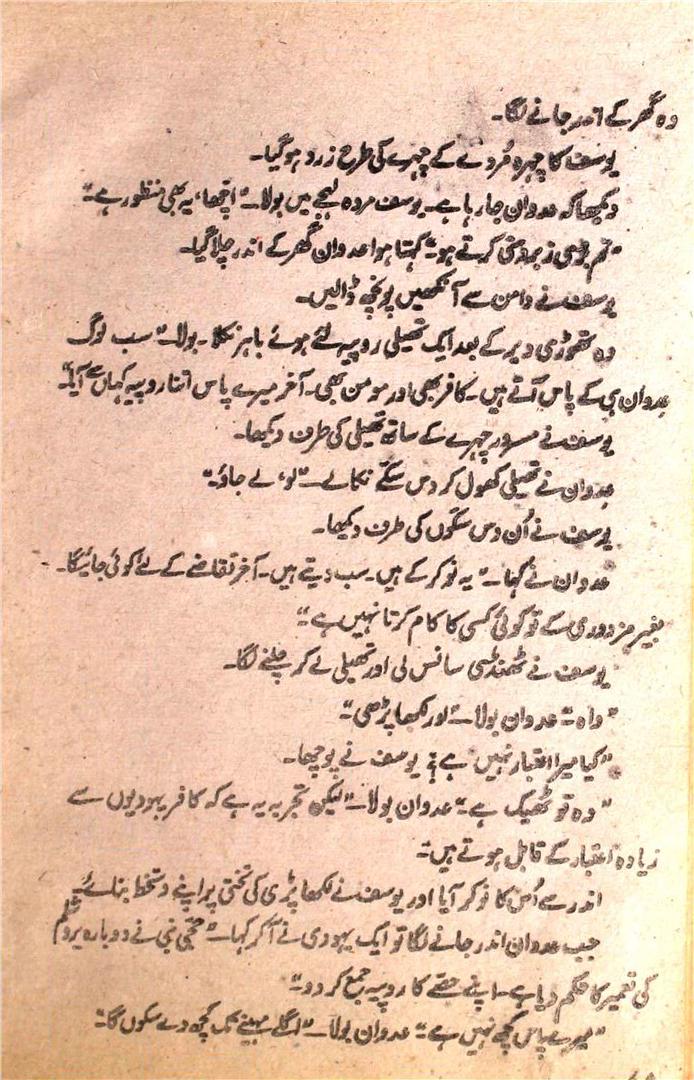 وہ گھر کے اندر جانے لگا۔
یوسف کا چہرہ مُردے کے چہرے کی طرح زرد ہو گیا۔
دیکھا کہ عدوان جا رہا ہے۔ یوسف مردہ لہجے میں بولا۔ "اچھا، یہ بھی منظور ہے"
"تم بڑی زبردستی کرتے ہو" کہتا ہوا عدوان گھر کے اندر چلا گیا۔
یوسف نے دامن سے آنکھیں پونچھ ڈالیں۔
وہ تھوڑی دیر کے بعد ایک تھیلی روپیہ لئے ہوئے باہر نکلا۔ بولا۔ "سب لوگ
عدوان ہی کے پاس آتے ہیں۔ کافر بھی اور مومن بھی۔ آخر میرے پاس اتنا روپیہ کہاں سے آیا"
یوسف نے مسرور چہرے کے ساتھ تھیلی کی طرف دیکھا۔
عدوان نے تھیلی کھول کر دس سکّے نکالے۔ "لو، لے جاؤ۔"
یوسف نے اُن دس سکّوں کی طرف دیکھا۔
عدوان نے کہا۔ "یہ نوکر کے ہیں۔ سب دیتے ہیں۔ آخر تقاضے کے لئے کوئی جائیگا۔
بغیر مزدوری کے تو کوئی کسی کا کام کرتا نہیں ہے"
یوسف نے ٹھنڈی سانس لی اور تھیلی لے کر چلنے لگا۔
"واہ" عدوان بولا۔ "اور لکھا پڑھی"
"کیا میرا اعتبار نہیں ہے؟" یوسف نے پوچھا۔
"وہ تو ٹھیک ہے" عدوان بولا۔ "لیکن تجربہ یہ ہے کہ کافر یہودیوں سے
زیادہ اعتبار کے قابل ہوتے ہیں"
اندر سے اُس کا نوکر آیا اور یوسف نے لکھا پڑی کی تختی پر اپنے دستخط بنائے۔
جب عدوان اندر جانے لگا تو ایک یہودی نے آ کر کہا۔ "حجّی نبی نے دوبارہ یروشلم
کی تعمیر کا حکم دیا ہے۔ اپنے حصّے کا روپیہ جمع کر دو"
"میرے پاس کچھ نہیں ہے" عدوان بولا۔ "اگلے مہینے تک کچھ دے سکوں گا"